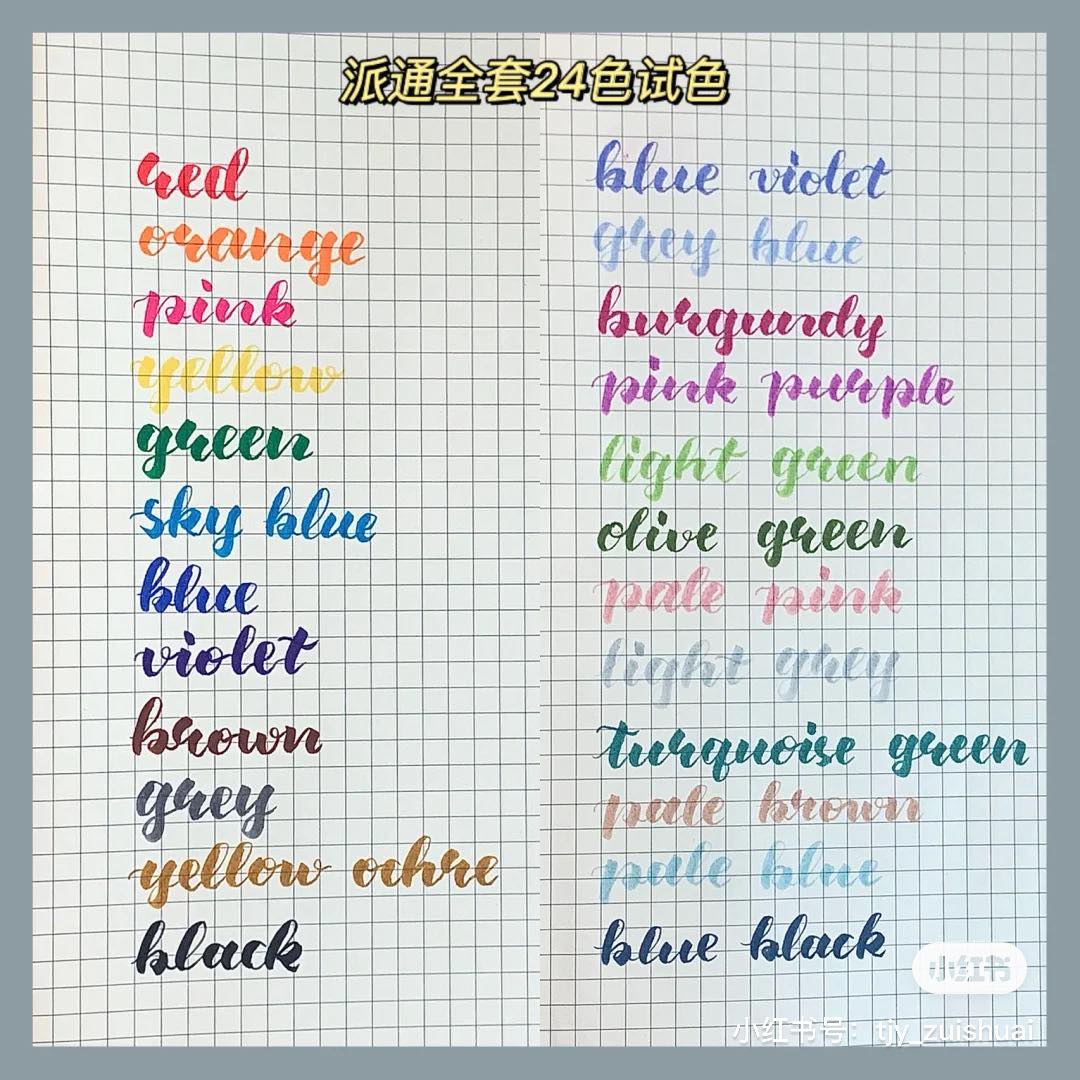 派通全套24色试色
red
orange
pink
yellow
green
sky blue
blue
violet
brown
grey
yellow ochre
black
blue violet
grey blue
burgundy
pink purple
light green
olive green
pale pink
light grey
turquoise green
pale brown
pale blue
blue black
小红书
小红书号：tjy_zuishuai